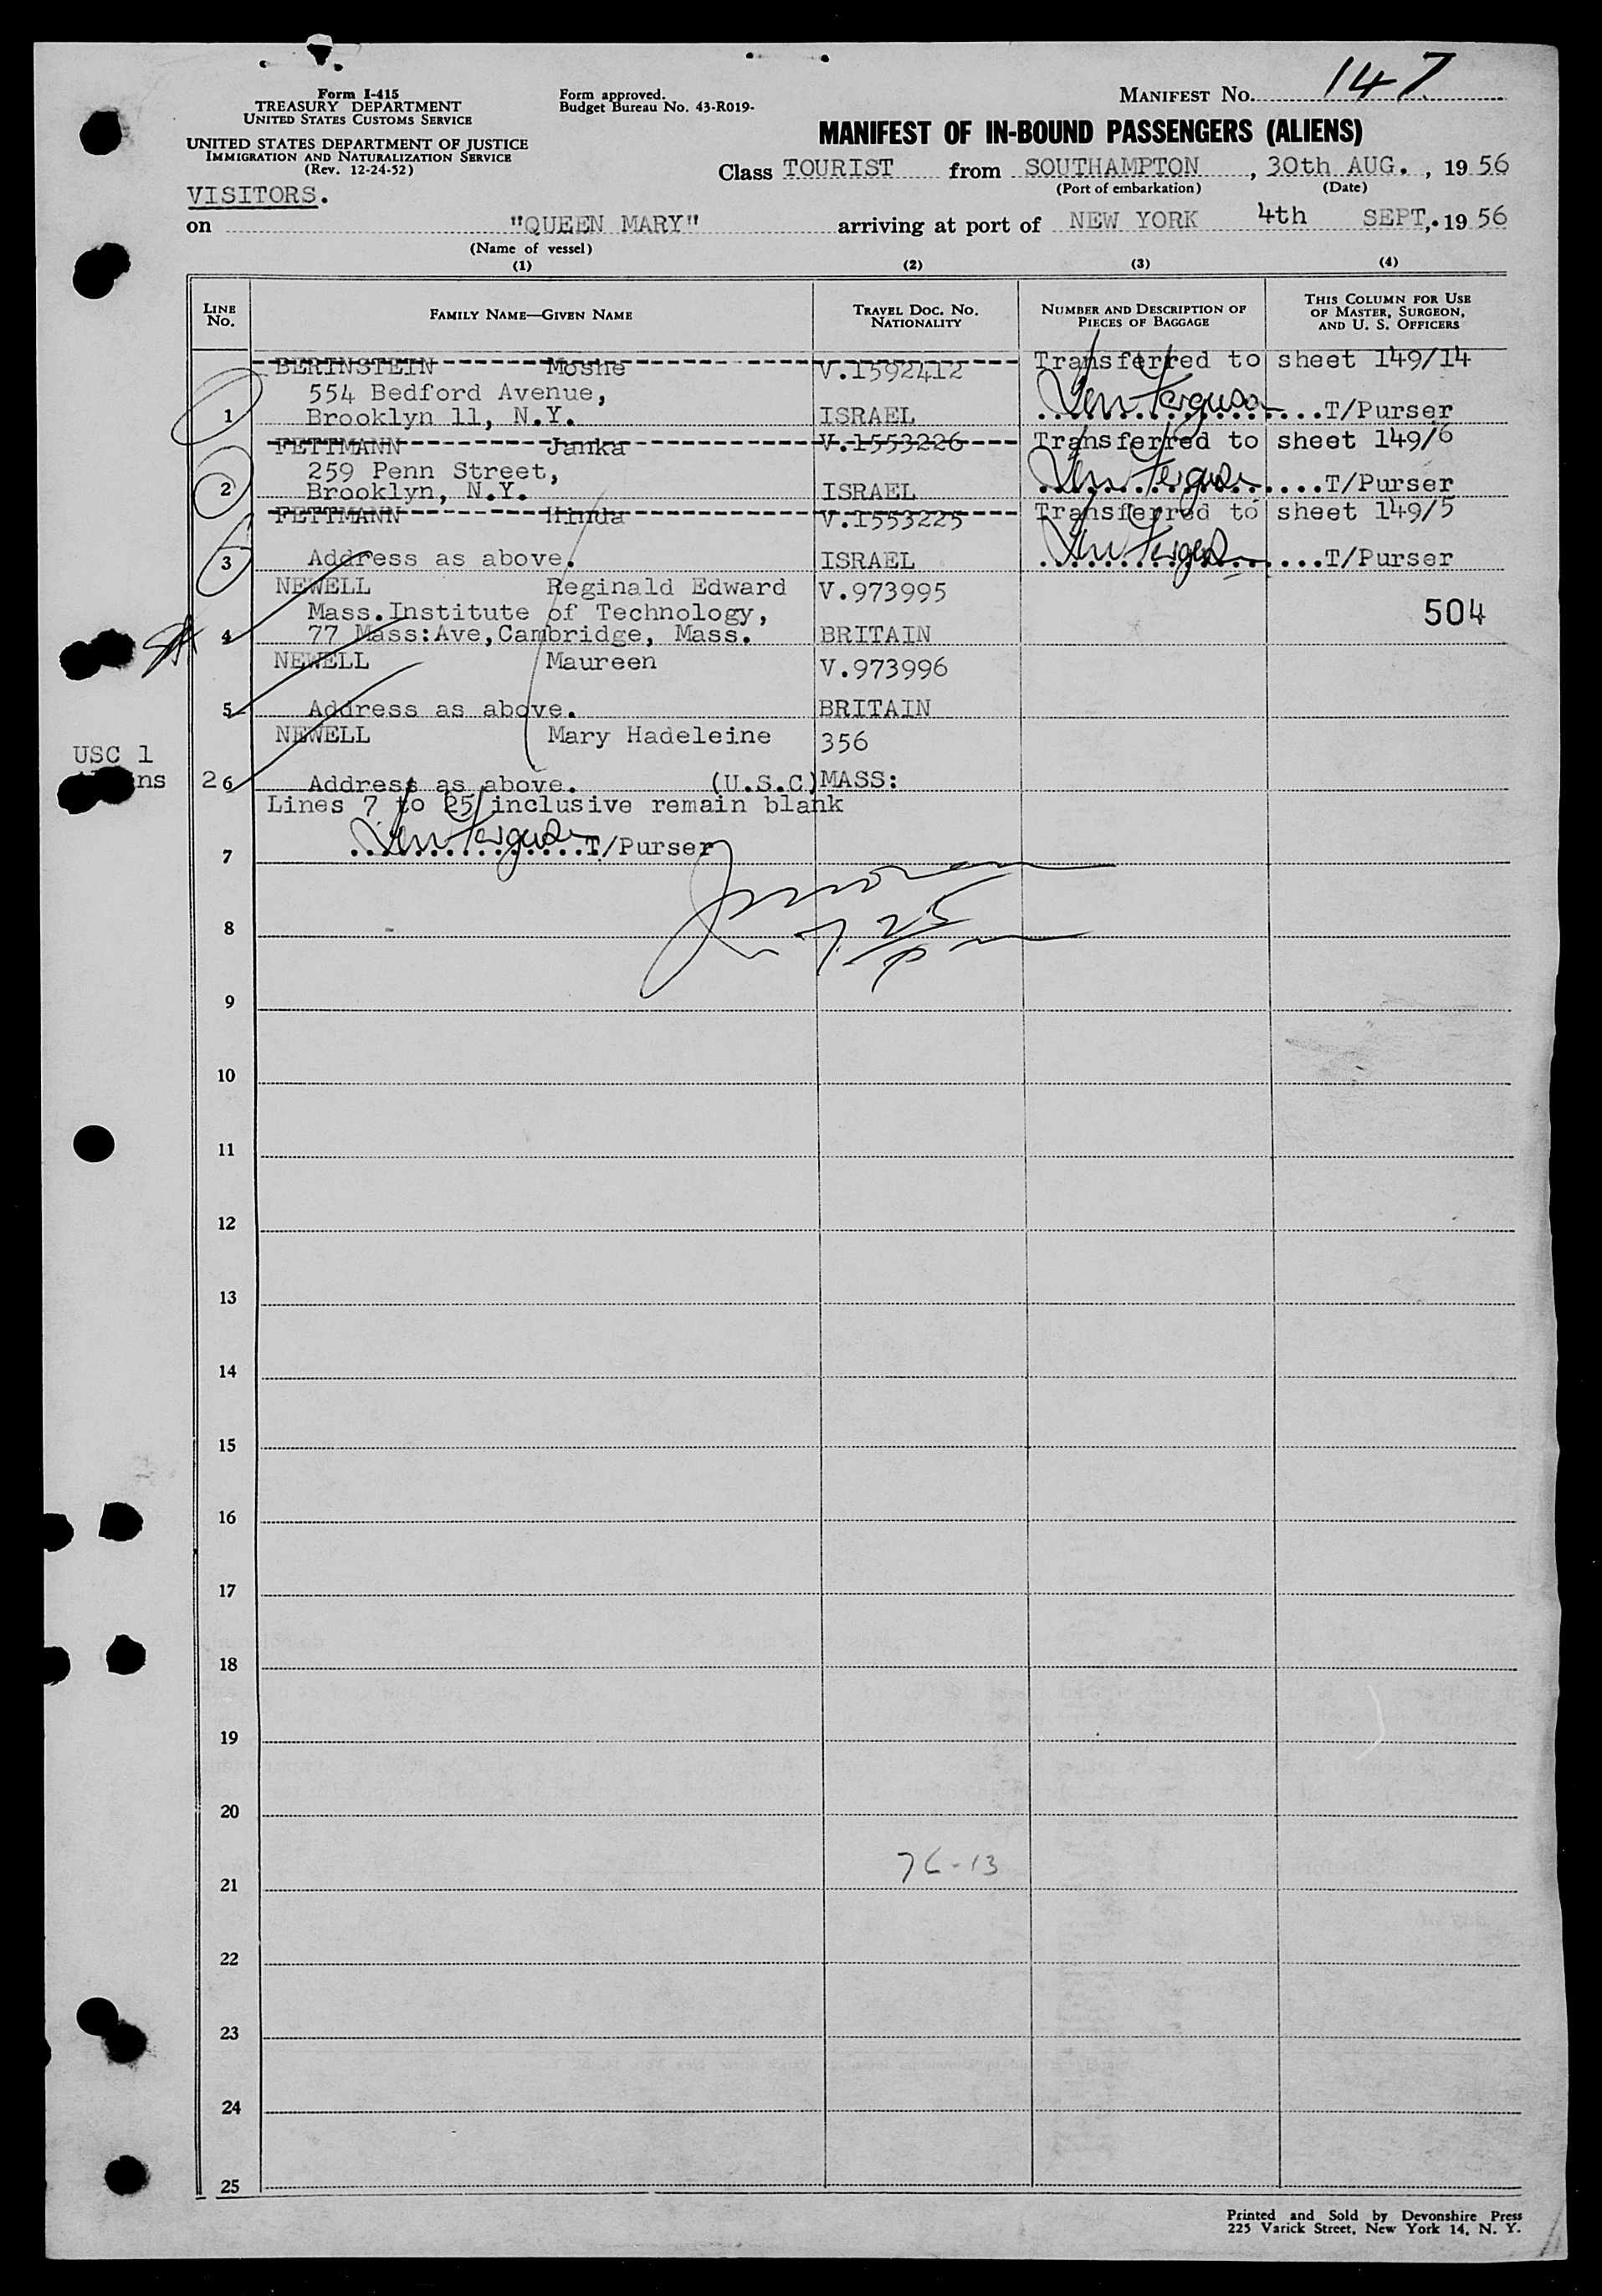 MANIFEST NO. 147
Form I-415
TREASURY DEPARTMENT
UNITED STATES CUSTOMS SERVICE
Form approved.
Budget Bureau No. 43-R019-
UNITED STATES DEPARTMENT OF JUSTICE
IMMIGRATION AND NATURALIZATION SERVICE
(Rev. 12-24-52)
MANIFEST OF IN-BOUND PASSENGERS (ALIENS)
Class TOURIST from SOUTHAMPTON, 30th AUG., 1956
(Port of embarkation) (Date)
VISITORS.
on "QUEEN MARY" arriving at port of NEW YORK 4th SEPT,. 1956
(Name of vessel)
(1) (2) (3) (4)
LINE NO. FAMILY NAME—GIVEN NAME TRAVEL DOC. NO. NATIONALITY NUMBER AND DESCRIPTION OF PIECES OF BAGGAGE THIS COLUMN FOR USE OF MASTER, SURGEON, AND U. S. OFFICERS
BERINSTEIN Moshe V.1592412 Transferred to sheet 149/14
554 Bedford Avenue,
1 Brooklyn 11, N.Y. ISRAEL T/Purser
FETTMANN Janka V.1553226 Transferred to sheet 149/6
259 Penn Street,
2 Brooklyn, N.Y. ISRAEL T/Purser
FETTMANN Hinda V.1553225 Transferred to sheet 149/5
3 Address as above. ISRAEL T/Purser
NEWELL Reginald Edward V.973995
Mass.Institute of Technology, 504
4 77 Mass:Ave,Cambridge, Mass. BRITAIN
NEWELL Maureen V.973996
5 Address as above. BRITAIN
NEWELL Mary Hadeleine 356
USC 1
ns 2 6 Address as above. (U.S.C) MASS:
Lines 7 to 25 inclusive remain blank
7 T/Purser
8
9
10
11
12
13
14
15
16
17
18
19
20
76-13
21
22
23
24
25
Printed and Sold by Devonshire Press
225 Varick Street, New York 14, N. Y.